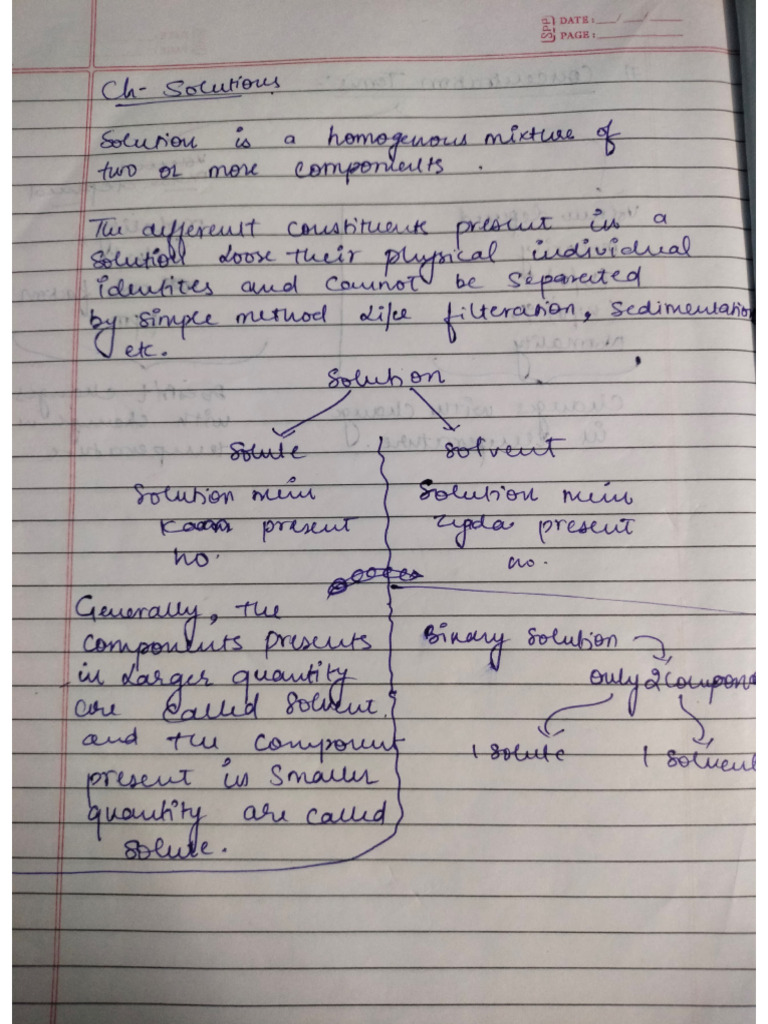 SPP DATE: __/__/__
PAGE: ______
Ch- Solutions
Solution is a homogenous mixture of
two or more components .
The different constituents present in a
solution loose their physical individual
identites and cannot be separated
by simple method like filteration, sedimentation
etc.
Solution
Solute
Solution mein
kam present
ho.
Solvent
Solution mein
zyda present
ho.
Generally, the
components presents
in larger quantity
are called solvent.
and the component
present in smaller
quantity are called
solute.
Binary Solution
only 2 Compon
1 Solute
1 Solvent